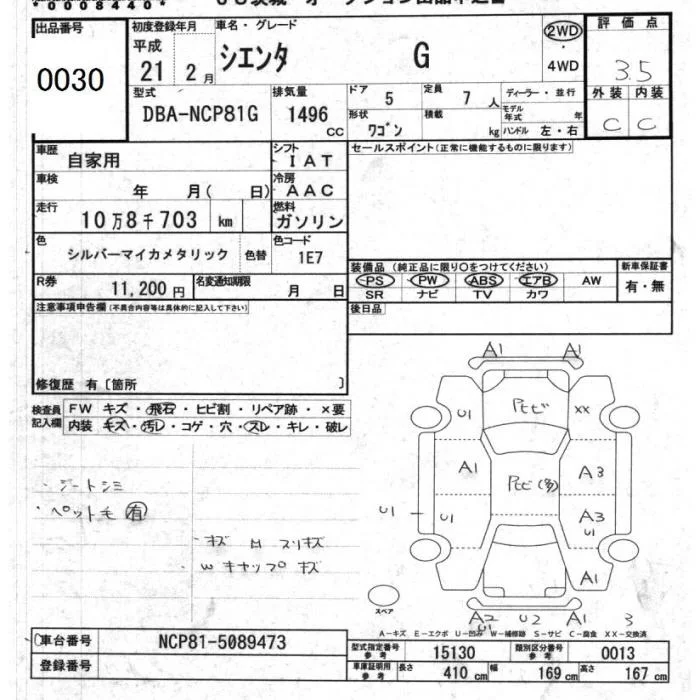 *0008440*
出品番号 初度登録年月 車名・グレード 評価点
0030 平成 21 2月 シエンタ G 2WD 4WD 3.5
外装 内装
C C
型式 排気量 ドア 定員 ディーラー・並行
DBA-NCP81G 1496 CC 5 7人 モデル年式 年
形状 積載 ハンドル 左・右
ワゴン kg
車歴 自家用 シフト IAT セールスポイント(正常に機能するものに限ります)
車検 年 月( 日) 冷房 AAC
走行 10万8千703 km 燃料 ガソリン
色 シルバーマイカメタリック 色替 色コード 1E7
装備品(純正品に限り○をつけてください) 新車保証書
PS PW ABS エアB AW 有・無
SR ナビ TV カワ
R券 11,200円 名変通知期限 月 日
注意事項申告欄(不具合内容等は具体的に記入して下さい) 後日品
修復歴 有〔箇所 〕
検査員記入欄 FW キズ・飛石・ヒビ割・リペア跡・×要
内装 キズ・汚レ・コゲ・穴・スレ・キレ・破レ
A1 A1
U1 XX
A1 A3
U1 U1 A3
U1
A1
A2 U2 A1 3
U1
・シートシミ
・ペット毛 有
・キズ H スリキズ
W キャップ キズ
スペア
A-キズ E-エクボ U-凹み W-補修跡 S-サビ C-腐食 XX-交換済
車台番号 NCP81-5089473
登録番号
型式指定番号 参考 15130 類別区分番号 参考 0013
車庫証明用 参考 長さ 410cm 幅 169cm 高さ 167cm